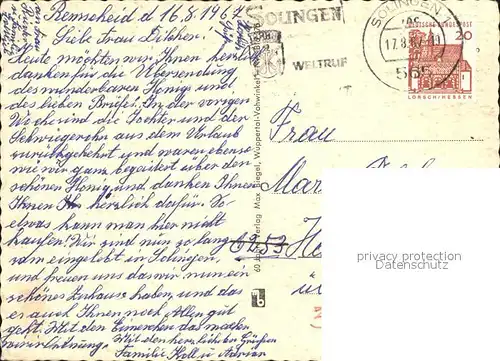 Remscheid d 16.8.1967
Liebe Frau
Heute möchten wir Ihnen herzlich
danken für die Übersendung
des wunderbaren Honigs und
des lieben Briefes. In der vorigen
Woche sind die Tochter und der
Schwiegersohn aus dem Urlaub
zurückgekehrt und waren ebenso
wie wir ganz begeistert über den
schönen Honig und danken Ihnen
Ihnen herzlich dafür. So
etwas kann man hier nicht
kaufen! Wir sind nun so lang
sam eingelebt in Solingen,
und freuen uns das wir nun ein
schönes Zuhause haben, und das
es auch Ihnen noch Allen gut
geht. Mit den das machen
wir Mit den herzlichsten Grüßen
Familie Koll u Adrian
SOLINGEN
WELTRUF
SOLINGEN
17.8.67
565
DEUTSCHE BUNDESPOST
20
LORSCH/HESSEN
Verlag Max Biegel, Wuppertal-Vohwinkel
Frau
6253
privacy protection
Datenschutz